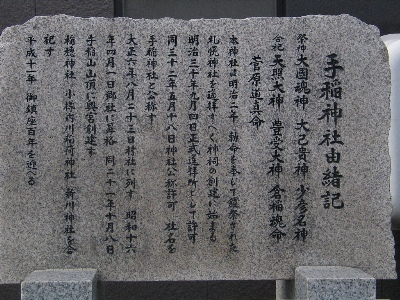 手稲神社由緒記
祭神 大國魂神 大己貴神 少彦名神
合祀 天照大神 豊受大神 倉稲魂命
菅原道真命
本神社は明治二年 勅命を奉じて鎮祭された
札幌神社を遥拝すべく神祠の創建に始まる
明治三十年七月四日正式遥拝所として許可
同三十二年五月十八日神社公称許可 社名を
手稲神社と公称す
大正六年八月二十三日村社に列す 昭和十六
年四月一日郷社に昇格 同二十一年十月八日
手稲山山頂に奥宮創建す
稲穂神社 小樽内川稲荷神社 新川神社を合
祀す
平成十一年 御鎮座百年を迎へる